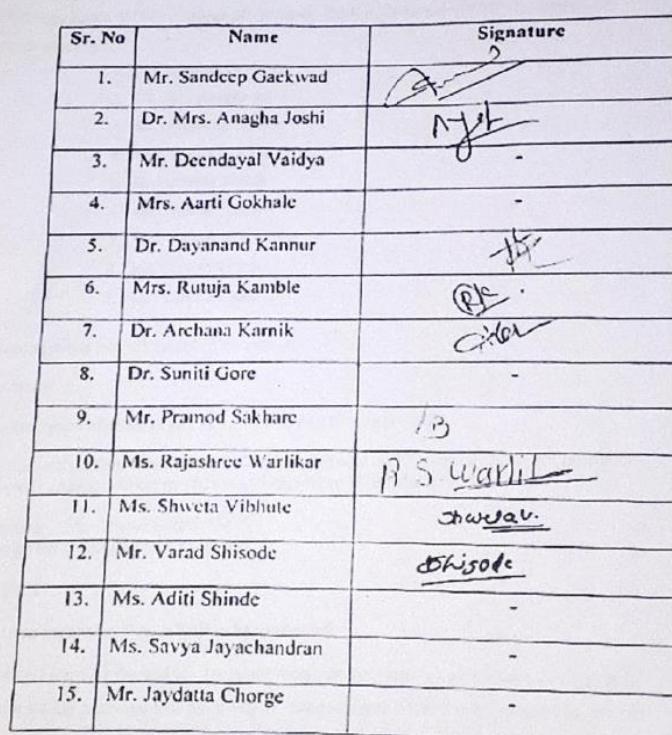 Sr. No Name Signature
1. Mr. Sandeep Gaekwad
2. Dr. Mrs. Anagha Joshi
3. Mr. Deendayal Vaidya -
4. Mrs. Aarti Gokhale -
5. Dr. Dayanand Kannur
6. Mrs. Rutuja Kamble
7. Dr. Archana Karnik
8. Dr. Suniti Gore -
9. Mr. Pramod Sakhare
10. Ms. Rajashree Warlikar
11. Ms. Shweta Vibhute
12. Mr. Varad Shisode Shisode
13. Ms. Aditi Shinde -
14. Ms. Savya Jayachandran -
15. Mr. Jaydatta Chorge -